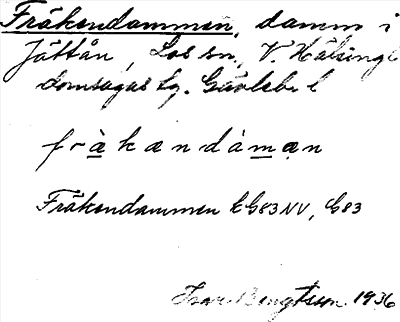 Fräkendammen, damm i
Jättån, Los sn, V. Hälsingl
domsagas tg. Gävlebs l
fràkandàman
Fräkendammen EG83NV, G83
Ivar Bengtsson 1936